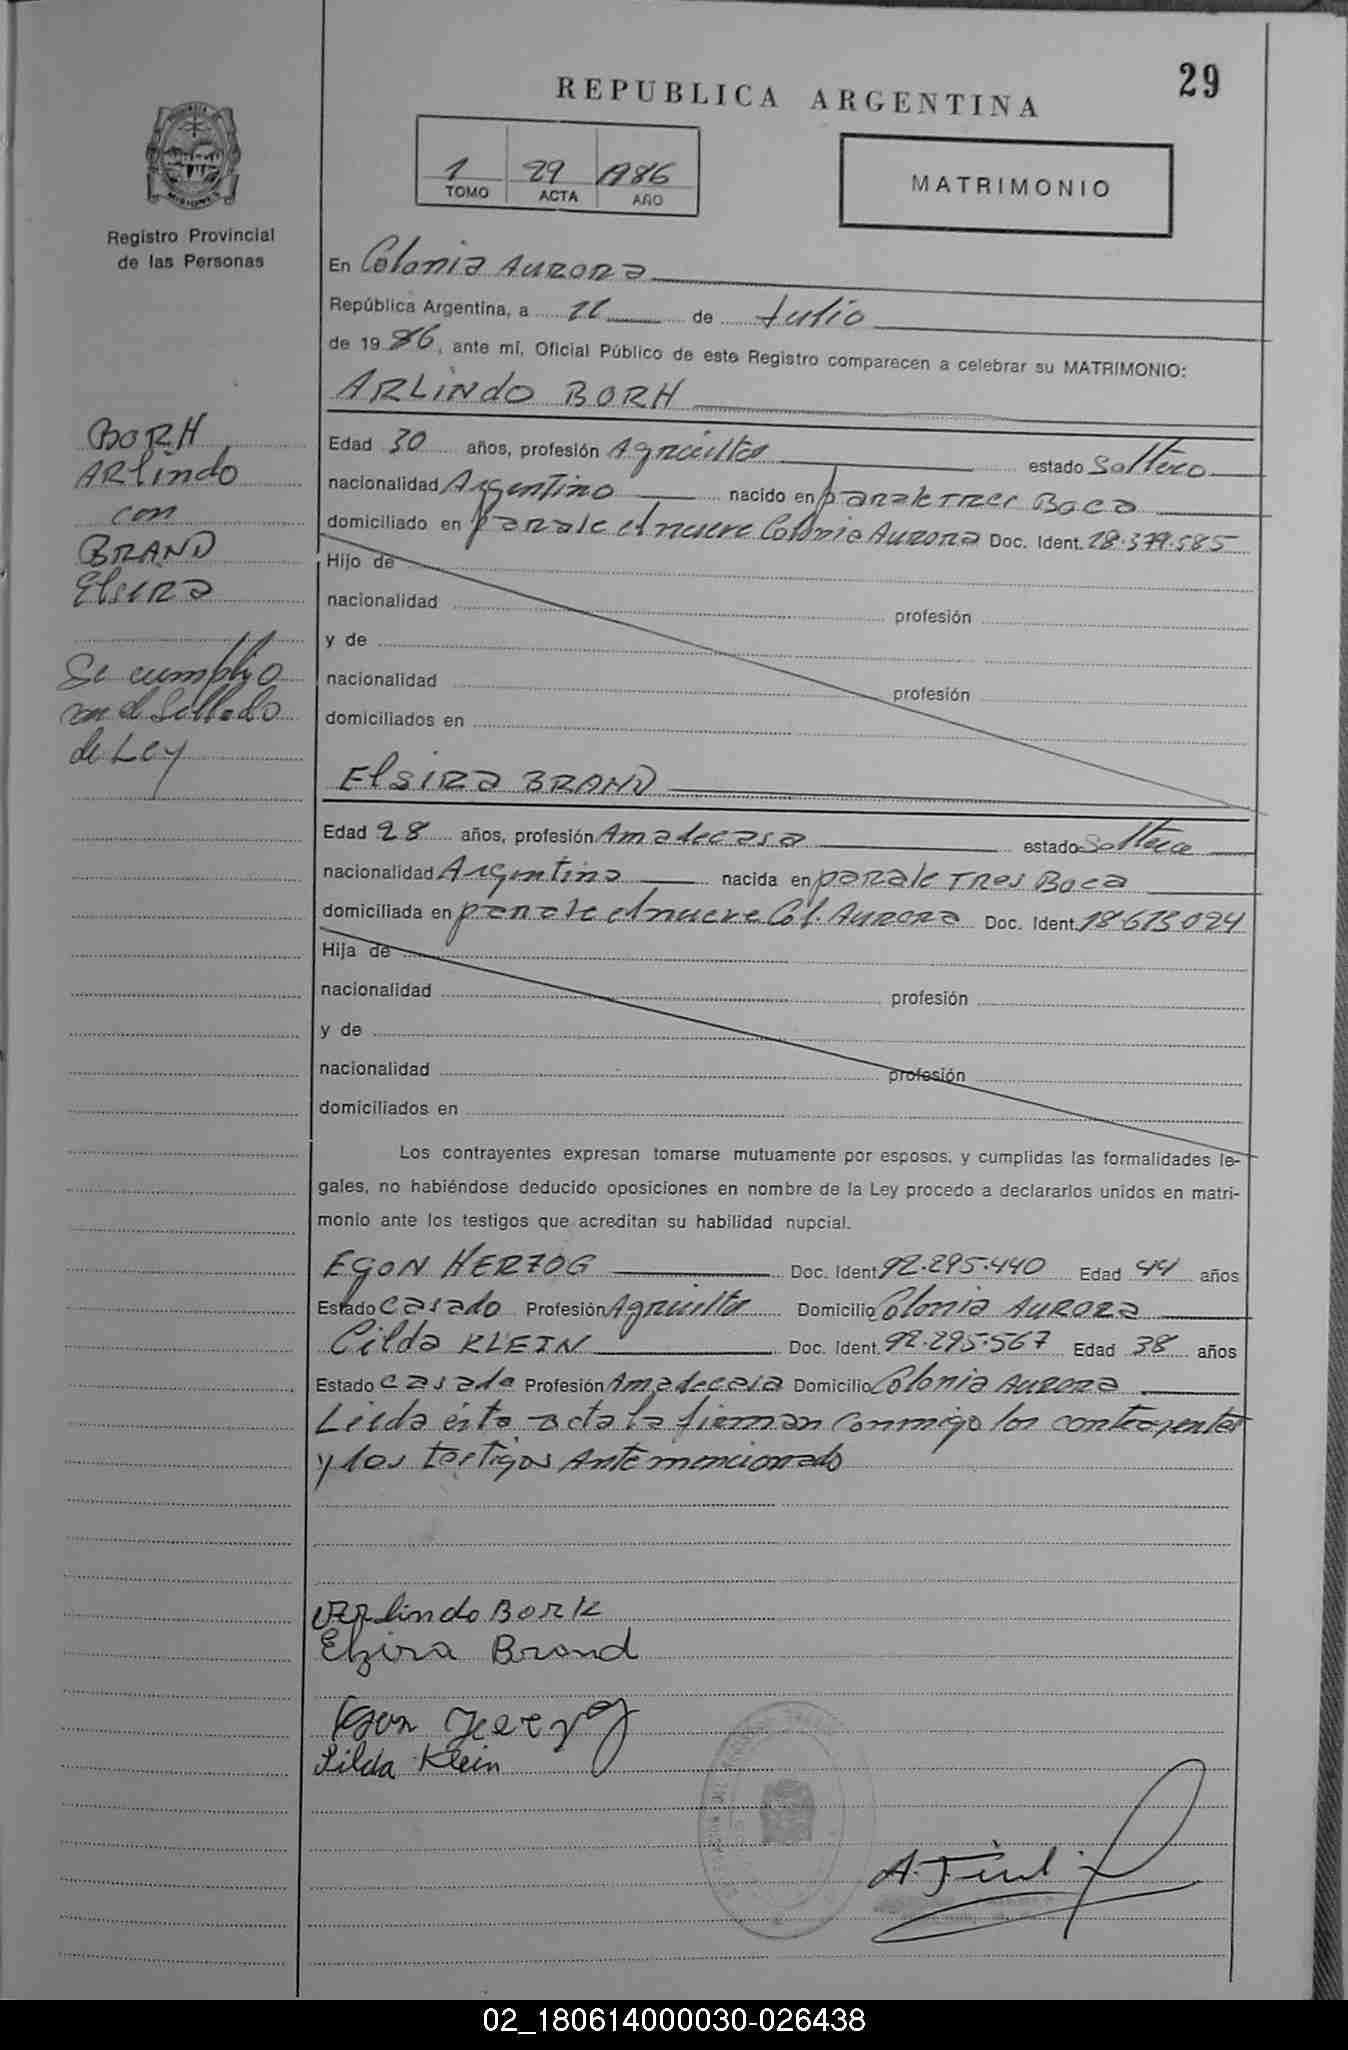 29
REPUBLICA ARGENTINA
1 29 1986
TOMO ACTA AÑO
MATRIMONIO
Registro Provincial
de las Personas
En Colonia Aurora
República Argentina, a 11 de Julio
de 1986, ante mí, Oficial Público de este Registro comparecen a celebrar su MATRIMONIO:
ARLINDO BORH
BORH
ARlindo
con
BRAND
Elsira
Se cumplio
con el Sellado
de Ley
Edad 30 años, profesión Agricultor estado Soltero
nacionalidad Argentino nacido en parale Tres Boca
domiciliado en parale el nueve Colonia Aurora Doc. Ident. 18.379.585
Hijo de
nacionalidad profesión
y de
nacionalidad profesión
domiciliados en
ElSIRA BRAND
Edad 28 años, profesión Ama de casa estado Soltera
nacionalidad Argentina nacida en parale Tres Boca
domiciliada en parale el nueve Col. Aurora Doc. Ident. 18.613.024
Hija de
nacionalidad profesión
y de
nacionalidad profesión
domiciliados en
Los contrayentes expresan tomarse mutuamente por esposos, y cumplidas las formalidades le-
gales, no habiéndose deducido oposiciones en nombre de la Ley procedo a declararlos unidos en matri-
monio ante los testigos que acreditan su habilidad nupcial.
EGON HERZOG Doc. Ident. 92.295.440 Edad 44 años
Estado Casado Profesión Agricultor Domicilio Colonia Aurora
Cilda KLEIN Doc. Ident. 92.295.567 Edad 38 años
Estado Casada Profesión Ama de casa Domicilio Colonia Aurora
Leida ésta acta la firman conmigo los contrayentes
y los testigos Ante mencionado
Arlindo Bork
Elzira Brand
Egon Herzog
Silda Klein
02_180614000030-026438